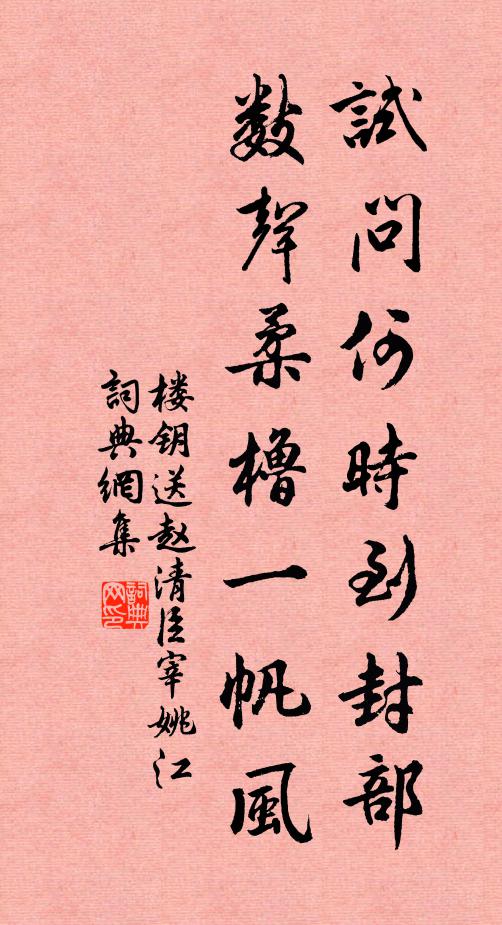 試問何時到封部
数聲柔櫓一帆風
楼钥送赵清臣宰姚江
詞典網集
詞典网印